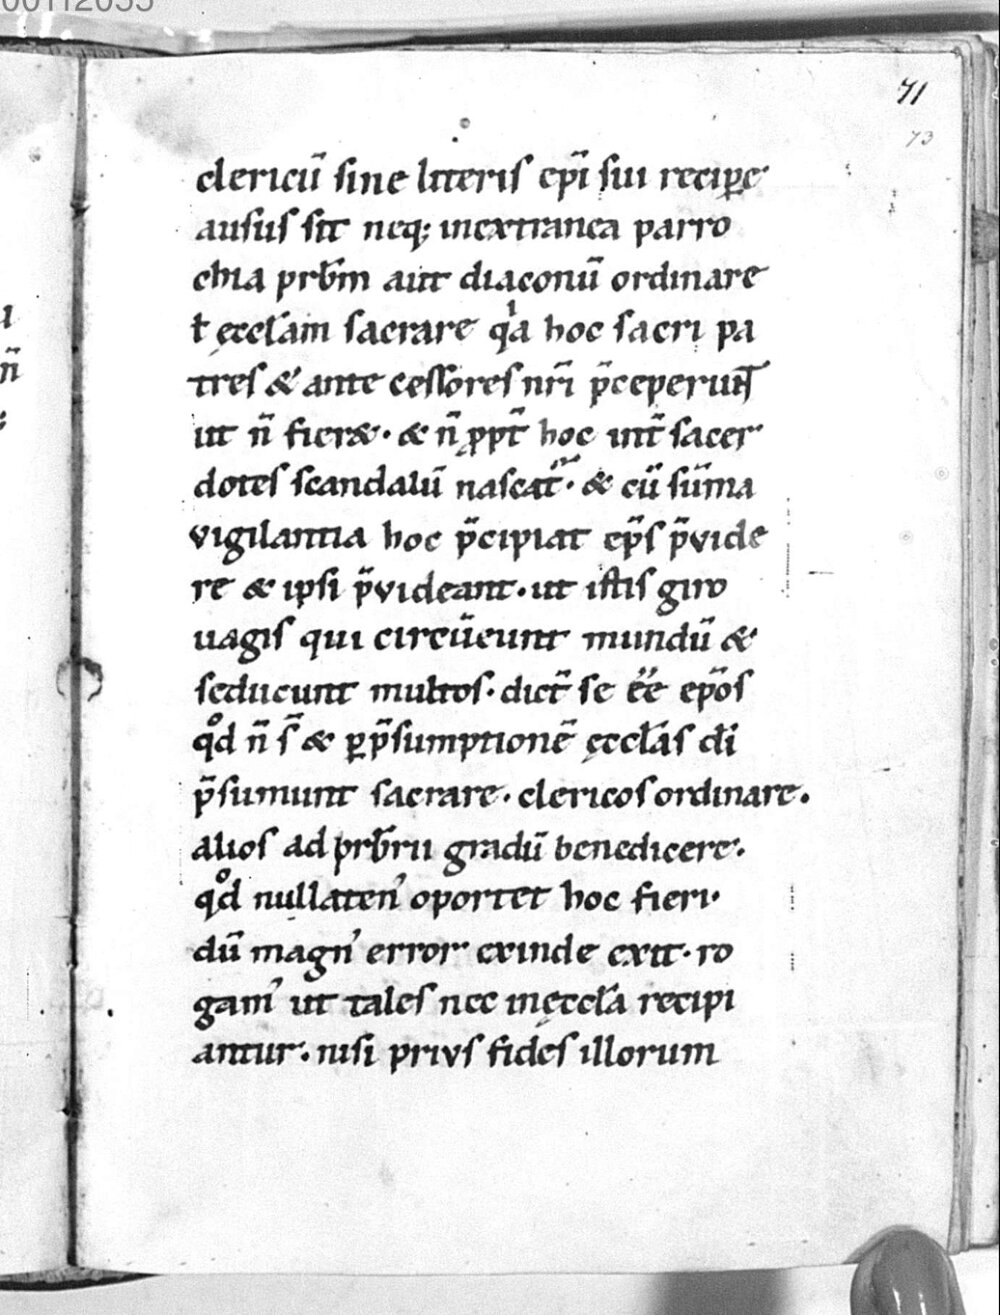 71
73
clericū sine literis ep̄i sui recipe
ausus sit neq; inextranea parro
chia prb̄m aut diaconū ordinare
ł ęccl̄am sacrare qͥa hoc sacri pa
tres & ante cessores nr̄i p̄ceperunt
ut n̄ fier&. & n̄ ꝓpt̄ hoc int̄ sacer
dotes scandalū nascat̄. & cū sūma
vigilantia hoc p̄cipiat ep̄s p̄vide
re & ipsi p̄videant. ut istis giro
uagis qui circūeunt mundū &
seducunt multos. dict̄ se ēē ep̄os
qͦd n̄ s̄ & ꝑp̄sumptionē ęccl̄as dī
p̄sumunt sacrare. clericos ordinare.
alios ad prb̄rii gradū benedicere.
qͦd nullaten᾽ oportet hoc fieri.
dū magn᾽ error exinde exit. ro
gam᾽ ut tales nec inęccl̄a recipi
antur. nisi privs fides illorum